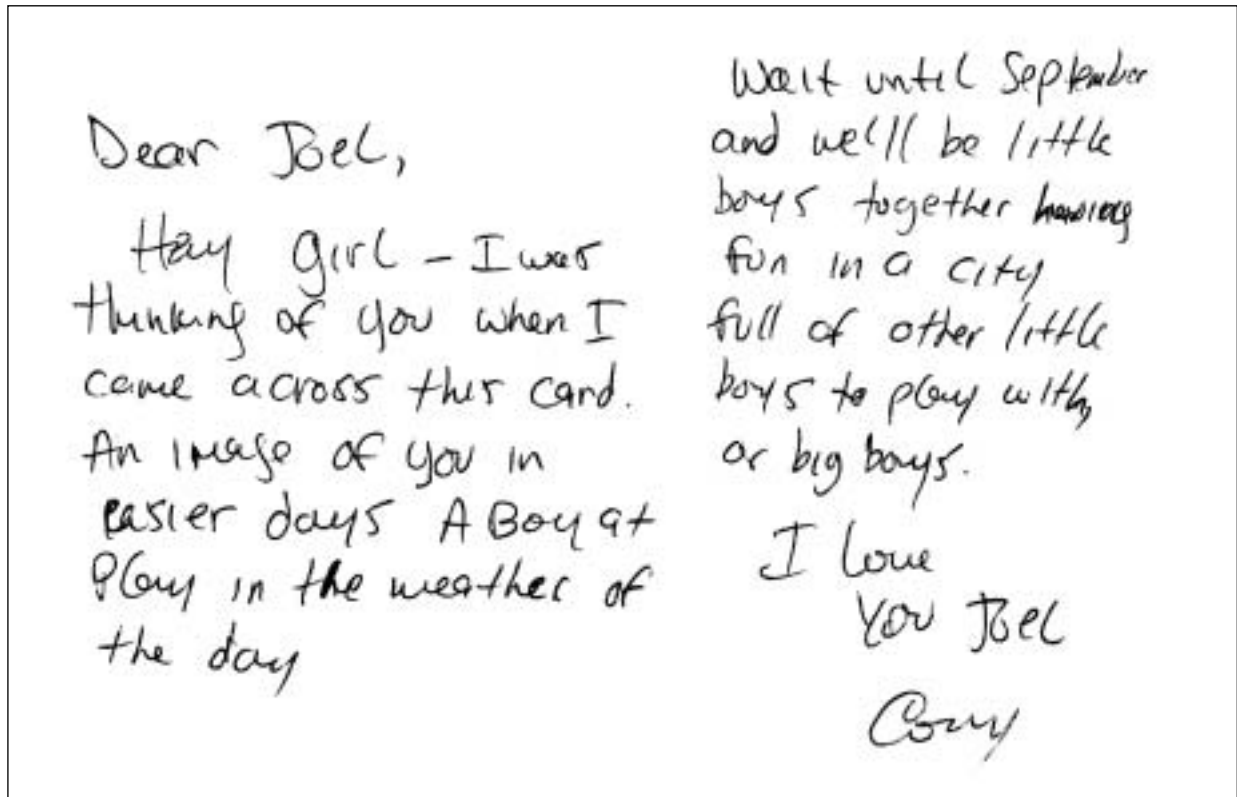 Dear Joel,
Hay Girl - I was
thinking of you when I
came across this card.
An image of you in
easier days A Boy at
Play in the weather of
the day
Wait until September
and we'll be little
boys together having
fun in a city
full of other little
boys to play with,
or big boys.
I love
You Joel
Cory